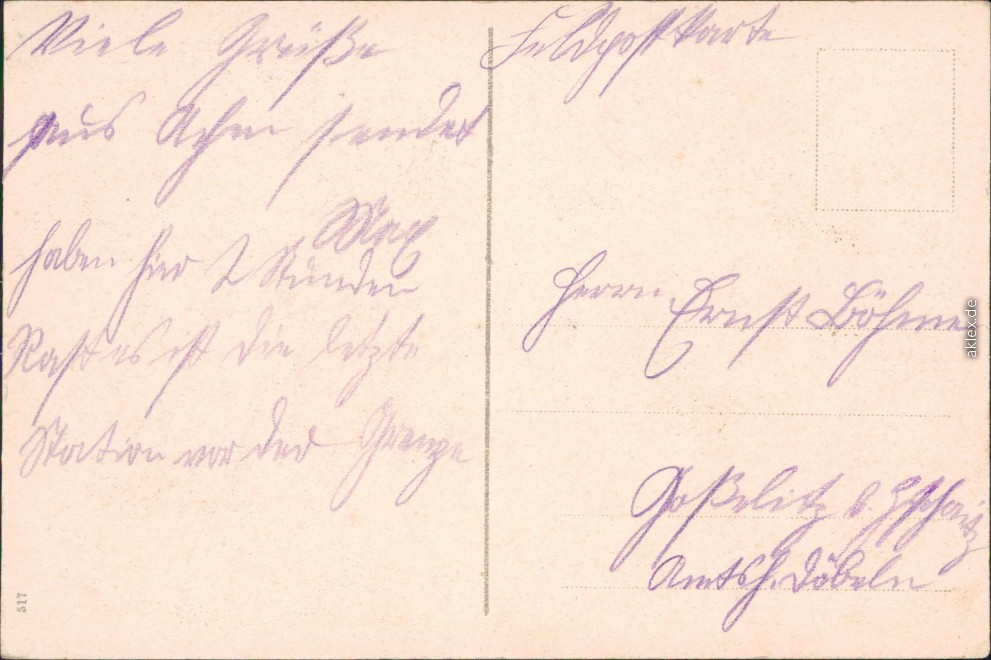 Viele Grüße
aus Achen sendet
Max
haben hier 2 Stunden
Rast es ist die letzte
Station vor der Grenze
517
Feldpostkarte
Herrn Ernst Böhme
Goßelitz b. Zschaitz
Amtsh. Döbeln
aklex.de